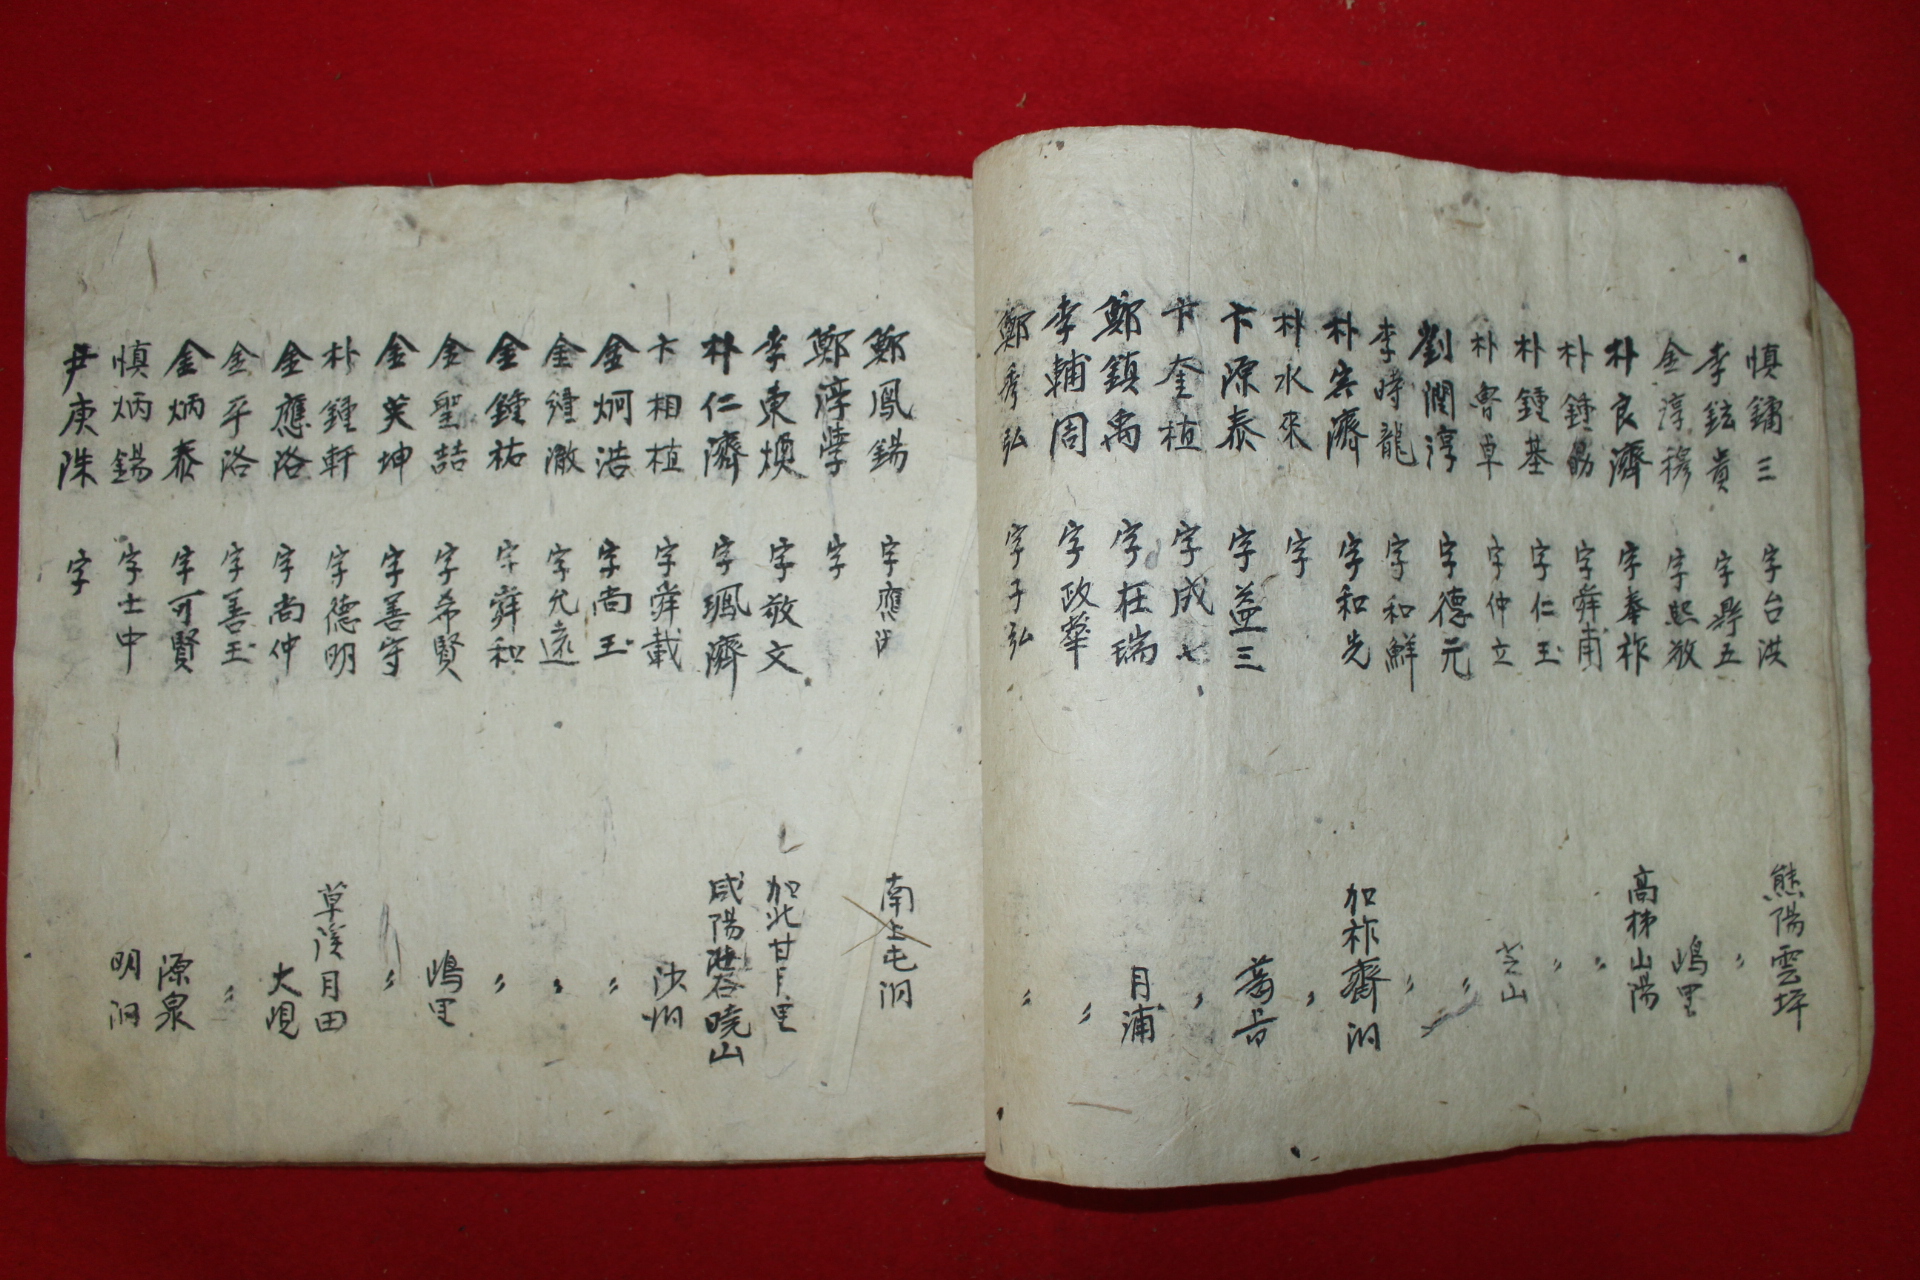 慎鏞三 字台洪 熊陽雲坪
李鉉貴 字鼎五 〃
金淳穆 字熙敬 嶋里
朴良濟 字奉祚 高梯山陽
朴鍾勗 字舜甫 〃
朴鍾基 字仁玉 〃
朴魯草 字仲立 芝山
劉潤淳 字德元 〃
李時龍 字和鮮 〃
朴宏濟 字和先 加祚齊洞
朴水來 字 〃
卞源泰 字益三
卞奎植 字成七 〃
鄭鎮禹 字在瑞 月浦
李輔周 字政華 〃
鄭秀弘 字子弘 〃
鄭鳳錫 字應 南上屯洞
鄭淳學 字
李東煥 字敬文 加北甘月里
朴仁濟 字珮濟 咸陽 曉山
卞相植 字舜載 沙洲
金炯浩 字尚玉 〃
金鍾澈 字允遠 〃
金鍾祐 字舜和 〃
金聖喆 字希賢 嶋里
金英坤 字善守 〃
朴鍾軒 字德明 草溪月田
金應洛 字尚仲 大峴
金平洛 字善玉 〃
金炳泰 字可賢 源泉
慎炳錫 字士中 明洞
尹庚洙 字